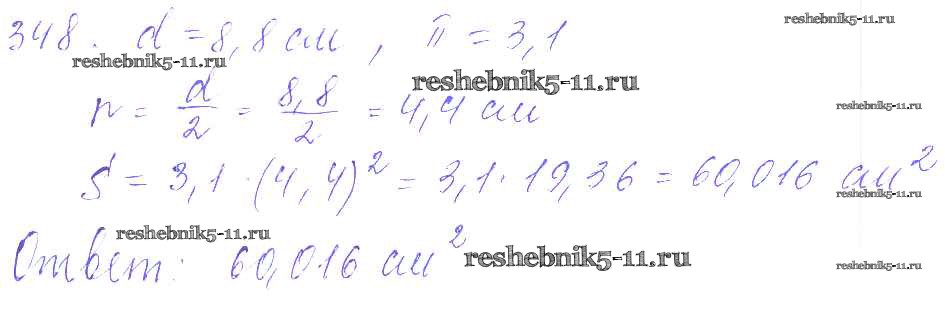 348. d = 8,8 см, π = 3,1
reshebnik5-11.ru
reshebnik5-11.ru
reshebnik5-11.ru
r = d/2 = 8,8/2 = 4,4 см
reshebnik5-11.ru
S = 3,1 · (4,4)² = 3,1 · 19,36 = 60,016 см²
reshebnik5-11.ru
Ответ: 60,016 см²
reshebnik5-11.ru
reshebnik5-11.ru
reshebnik5-11.ru